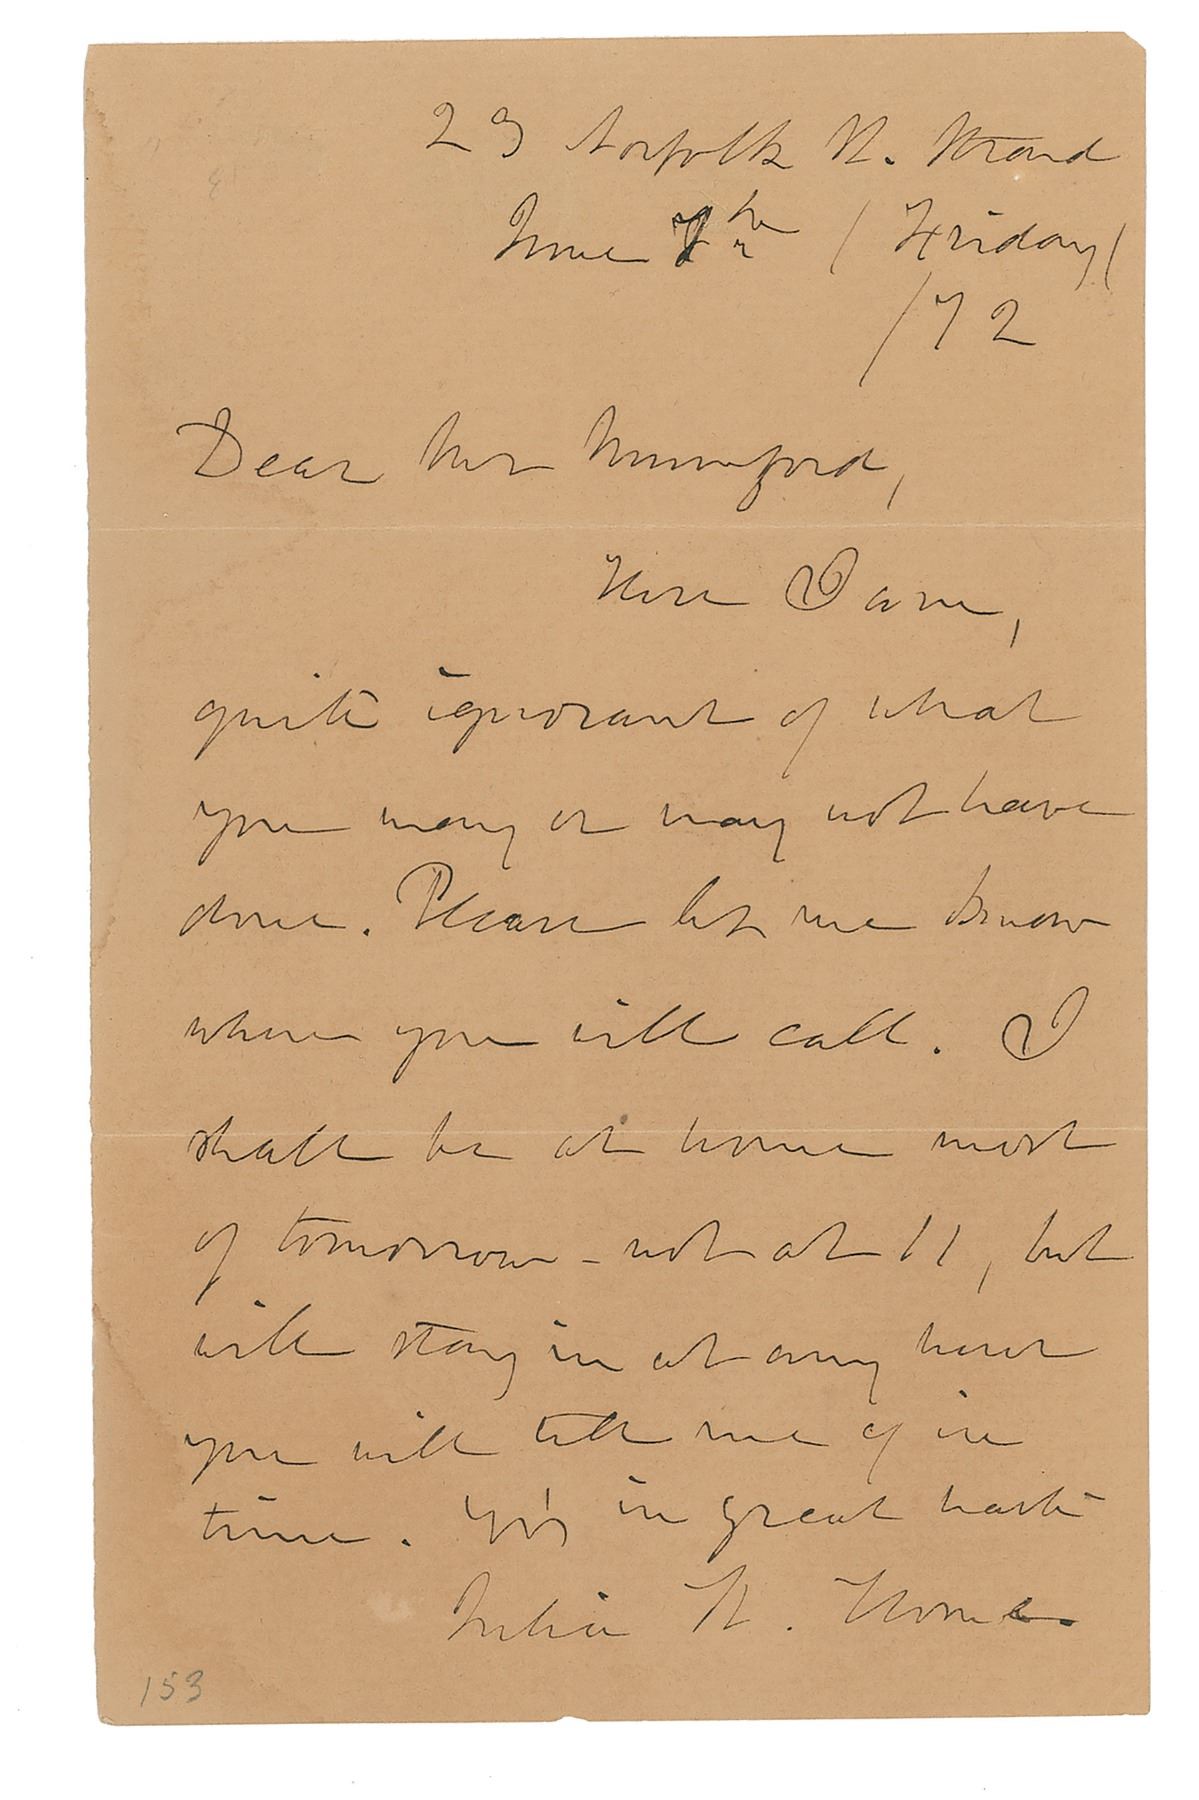 23 Norfolk St. Strand
June 7th / Friday /
/72
Dear Mrs Mumford,
Here I am,
quite ignorant of what
you may or may not have
done. Please let me know
when you will call. I
shall be at home most
of tomorrow - not at 11, but
will stay in at any hour
you will tell me of in
time. Yrs in great haste
Julia W. Howe.
153